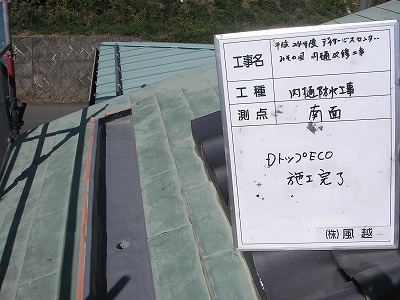 平成24年度 デイサービスセンター
工事名 みその園 内樋改修工事
工種 内樋防水工事
測点 南面
DトップECO
施工完了
(株)風越